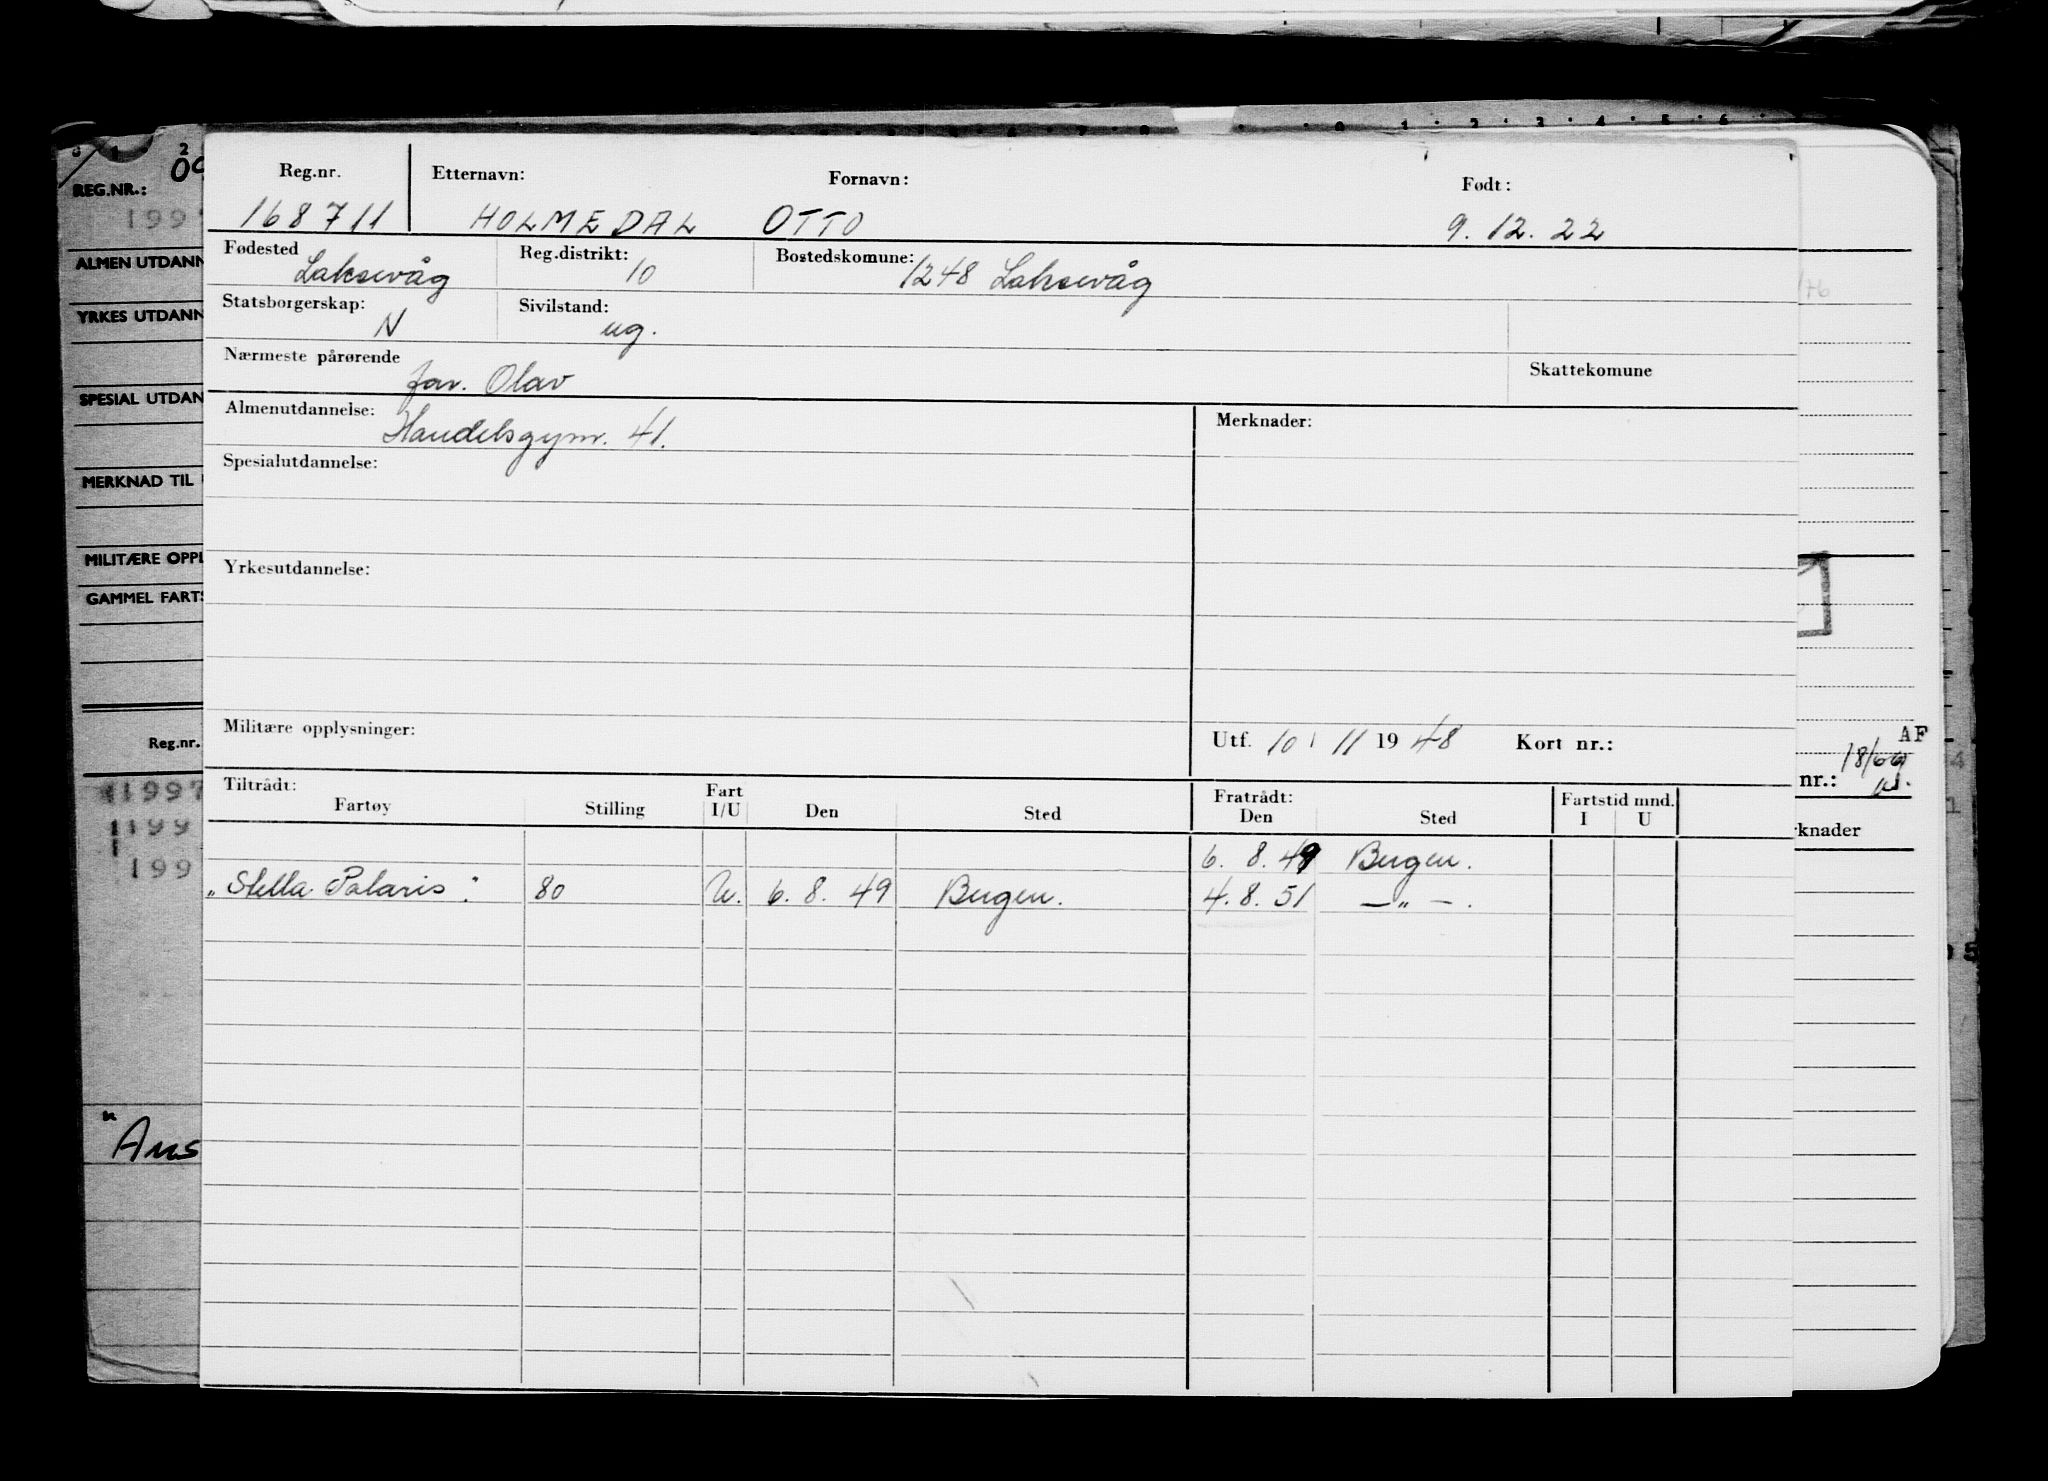 REG.NR.: 09
199
ALMEN UTDANN
YRKES UTDANN
SPESIAL UTDAN
MERKNAD TIL
MILITÆRE OPPL
GAMMEL FARTS
Reg.nr.
1997
199
199
"Ans
Reg.nr. Etternavn: Fornavn: Født:
168711 HOLMEDAL OTTO 9.12.22
Fødested Laksevåg Reg.distrikt: 10 Bostedskomune: 1248 Laksevåg
Statsborgerskap: N Sivilstand: ug.
Nærmeste pårørende far. Olav Skattekomune
Almenutdannelse: Handelsgymn. 41. Merknader:
Spesialutdannelse:
Yrkesutdannelse:
Militære opplysninger: Utf. 10 / 11 19 48 Kort nr.:
Tiltrådt: Fartøy Stilling Fart I/U Den Sted Fratrådt: Den Sted Fartstid mnd. I U
6. 8. 49 Bergen.
"Stella Polaris". 80 U. 6. 8. 49 Bergen. 4. 8. 51 — " —.
/76
AF
18/66
nr.:
knader